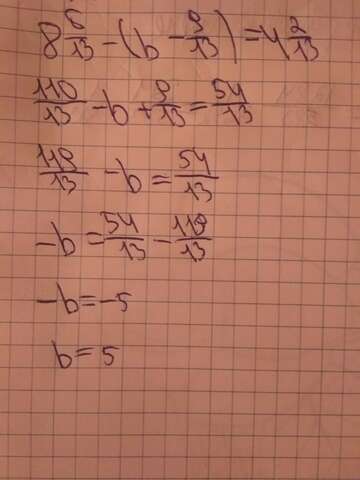 8 6/13 - (b - 9/13) = 4 2/13
110/13 - b + 9/13 = 54/13
119/13 - b = 54/13
-b = 54/13 - 119/13
-b = -5
b = 5